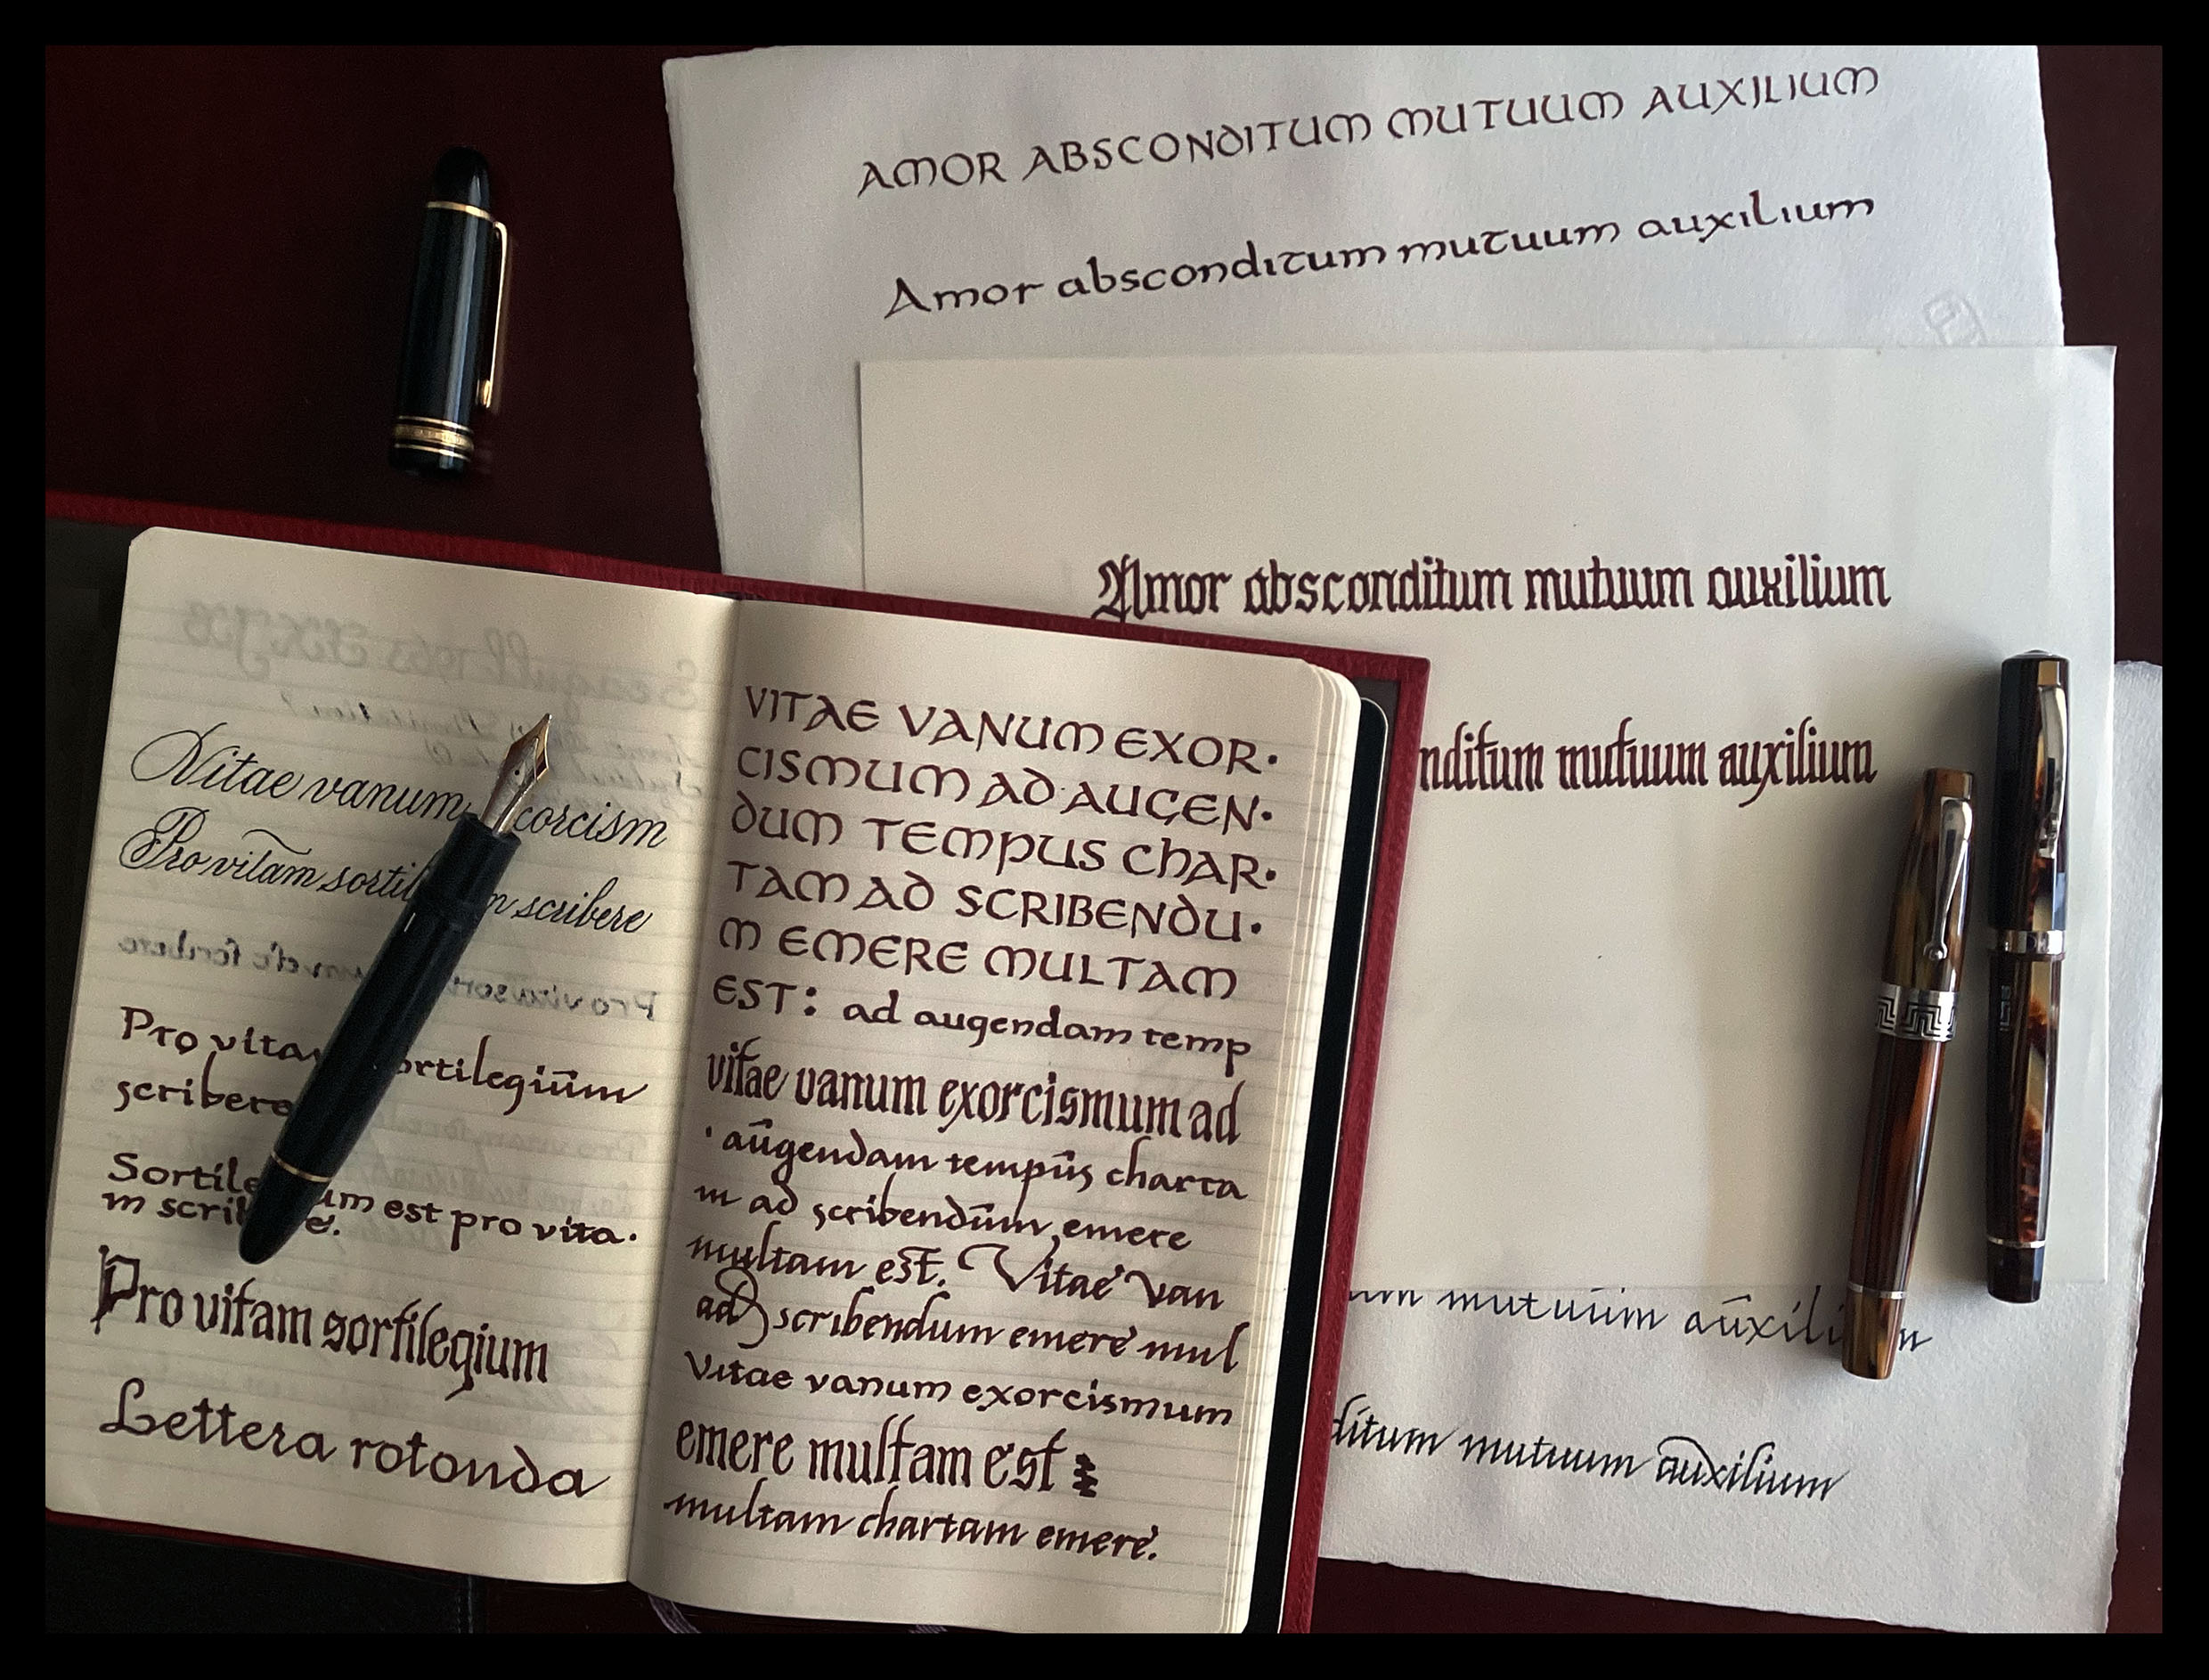 AMOR ABSCONDITUM MUTUUM AUXILIUM
Amor absconditum mutuum auxilium
Amor absconditum mutuum auxilium
nditum mutuum auxilium
mutuūm aūxili
ditum mutuum auxilium
Vitae vanum corcism
Pro vitam sortil m scribere
Pro vita ortilegiūm
scribere
Sortile um est pro vita·
m scrib e.
Pro vitam sortilegium
Lettera rotonda
VITAE VANUM EXOR·
CISMUM AD AUGEN·
DUM TEMPUS CHAR·
TAM AD SCRIBENDU·
M EMERE MULTAM
EST: ad augendam temp
vitae vanum exorcismum ad
· aūgendam tempūs charta
m ad scribendūm emere
multam est. Vitae van
ad scribendum emere mul
Vitae vanum exorcismum
emere multam est
multam chartam emere.